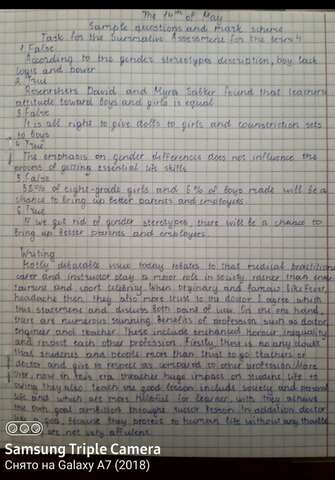 The 14th of May
Sample questions and mark scheme
Task for the Summative Assessment for the term 4
1. False
According to the gender stereotypes description, boy lack
logis and power
2. True
Researshers David and Myra Sadker found that teachers
attitude toward boys and girls is equal
3. False
It is all right to give dolls to girls and constriction sets
to boys
4. True
The emphasis on gender differences does not influence the
process of getting essential life skills
5. False
of eight-grade girls and 6% of boys made will be a
chance to bring up better parents and employees.
6. True
If we get rid of gender stereotypes, there will be a chance to
bring up besser parents and employees.
Writing
Mostly debatable issue today relates to that medical practitioner
career and instructor play a major role in society rather than
and sport celebrity. When ordinary and famous like fever,
headache then, they also more trust to the doctor. I agree which
this statement and discuss both point of view. On the one hand,
there are numerous benefits of profession such as doctor
engineer and teacher. These include
and respect each other profession. Firstly there is no any doubt
that students and people more than trust to go teachers or
doctor and give to respect as compared to other profession. More
over, now in this era teacher huge impact on student life
they also teach the good lesson include society and personal
life and which are more helpful for learner, with they achieve
own goal ambition throught lesson. In addition doctor
like a god, because they protect to human life without any trouble
are not very affulens.
SAMSUNG Triple Camera
Снято на Galaxy A7 (2018)